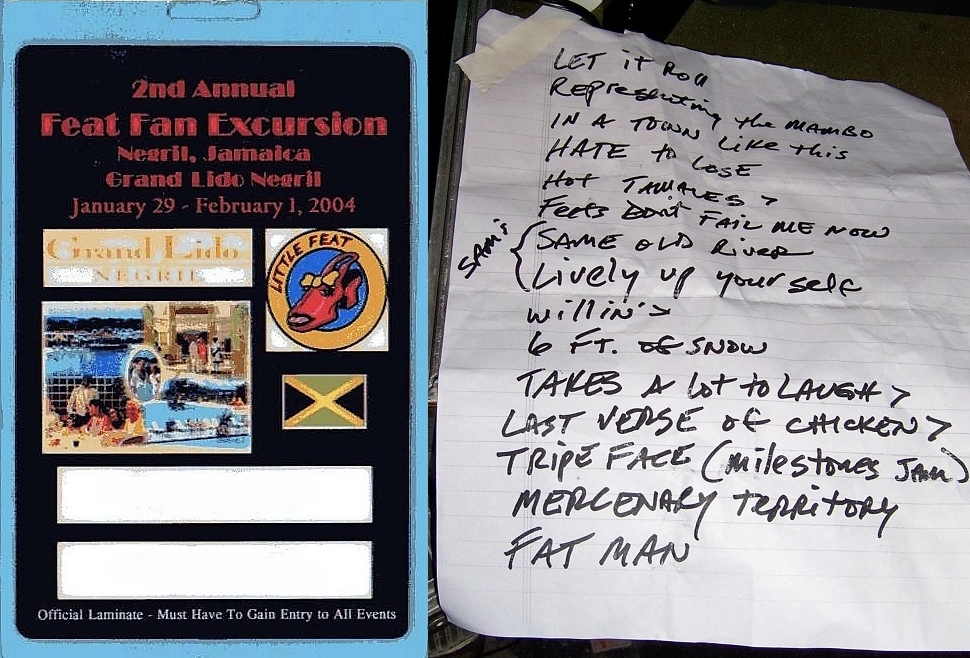 2nd Annual
Feat Fan Excursion
Negril, Jamaica
Grand Lido Negril
January 29 - February 1, 2004
Grand Lido
NEGRIL
LITTLE FEAT
Official Laminate - Must Have To Gain Entry to All Events
LET iT Roll
Representing the MAMBO
IN A TOWN Like this
HATE to LOSE
Hot TAMALES >
Feets Don't FAIL ME NOW
SAM's { SAME OLD RIVER
Lively up yourself
willin' >
6 FT. OF SNOW
TAKES A Lot to LAUGH >
LAST VERSE OF CHICKEN >
TRIPE FACE (milestones JAM)
MERCENARY TERRITORY
FAT MAN